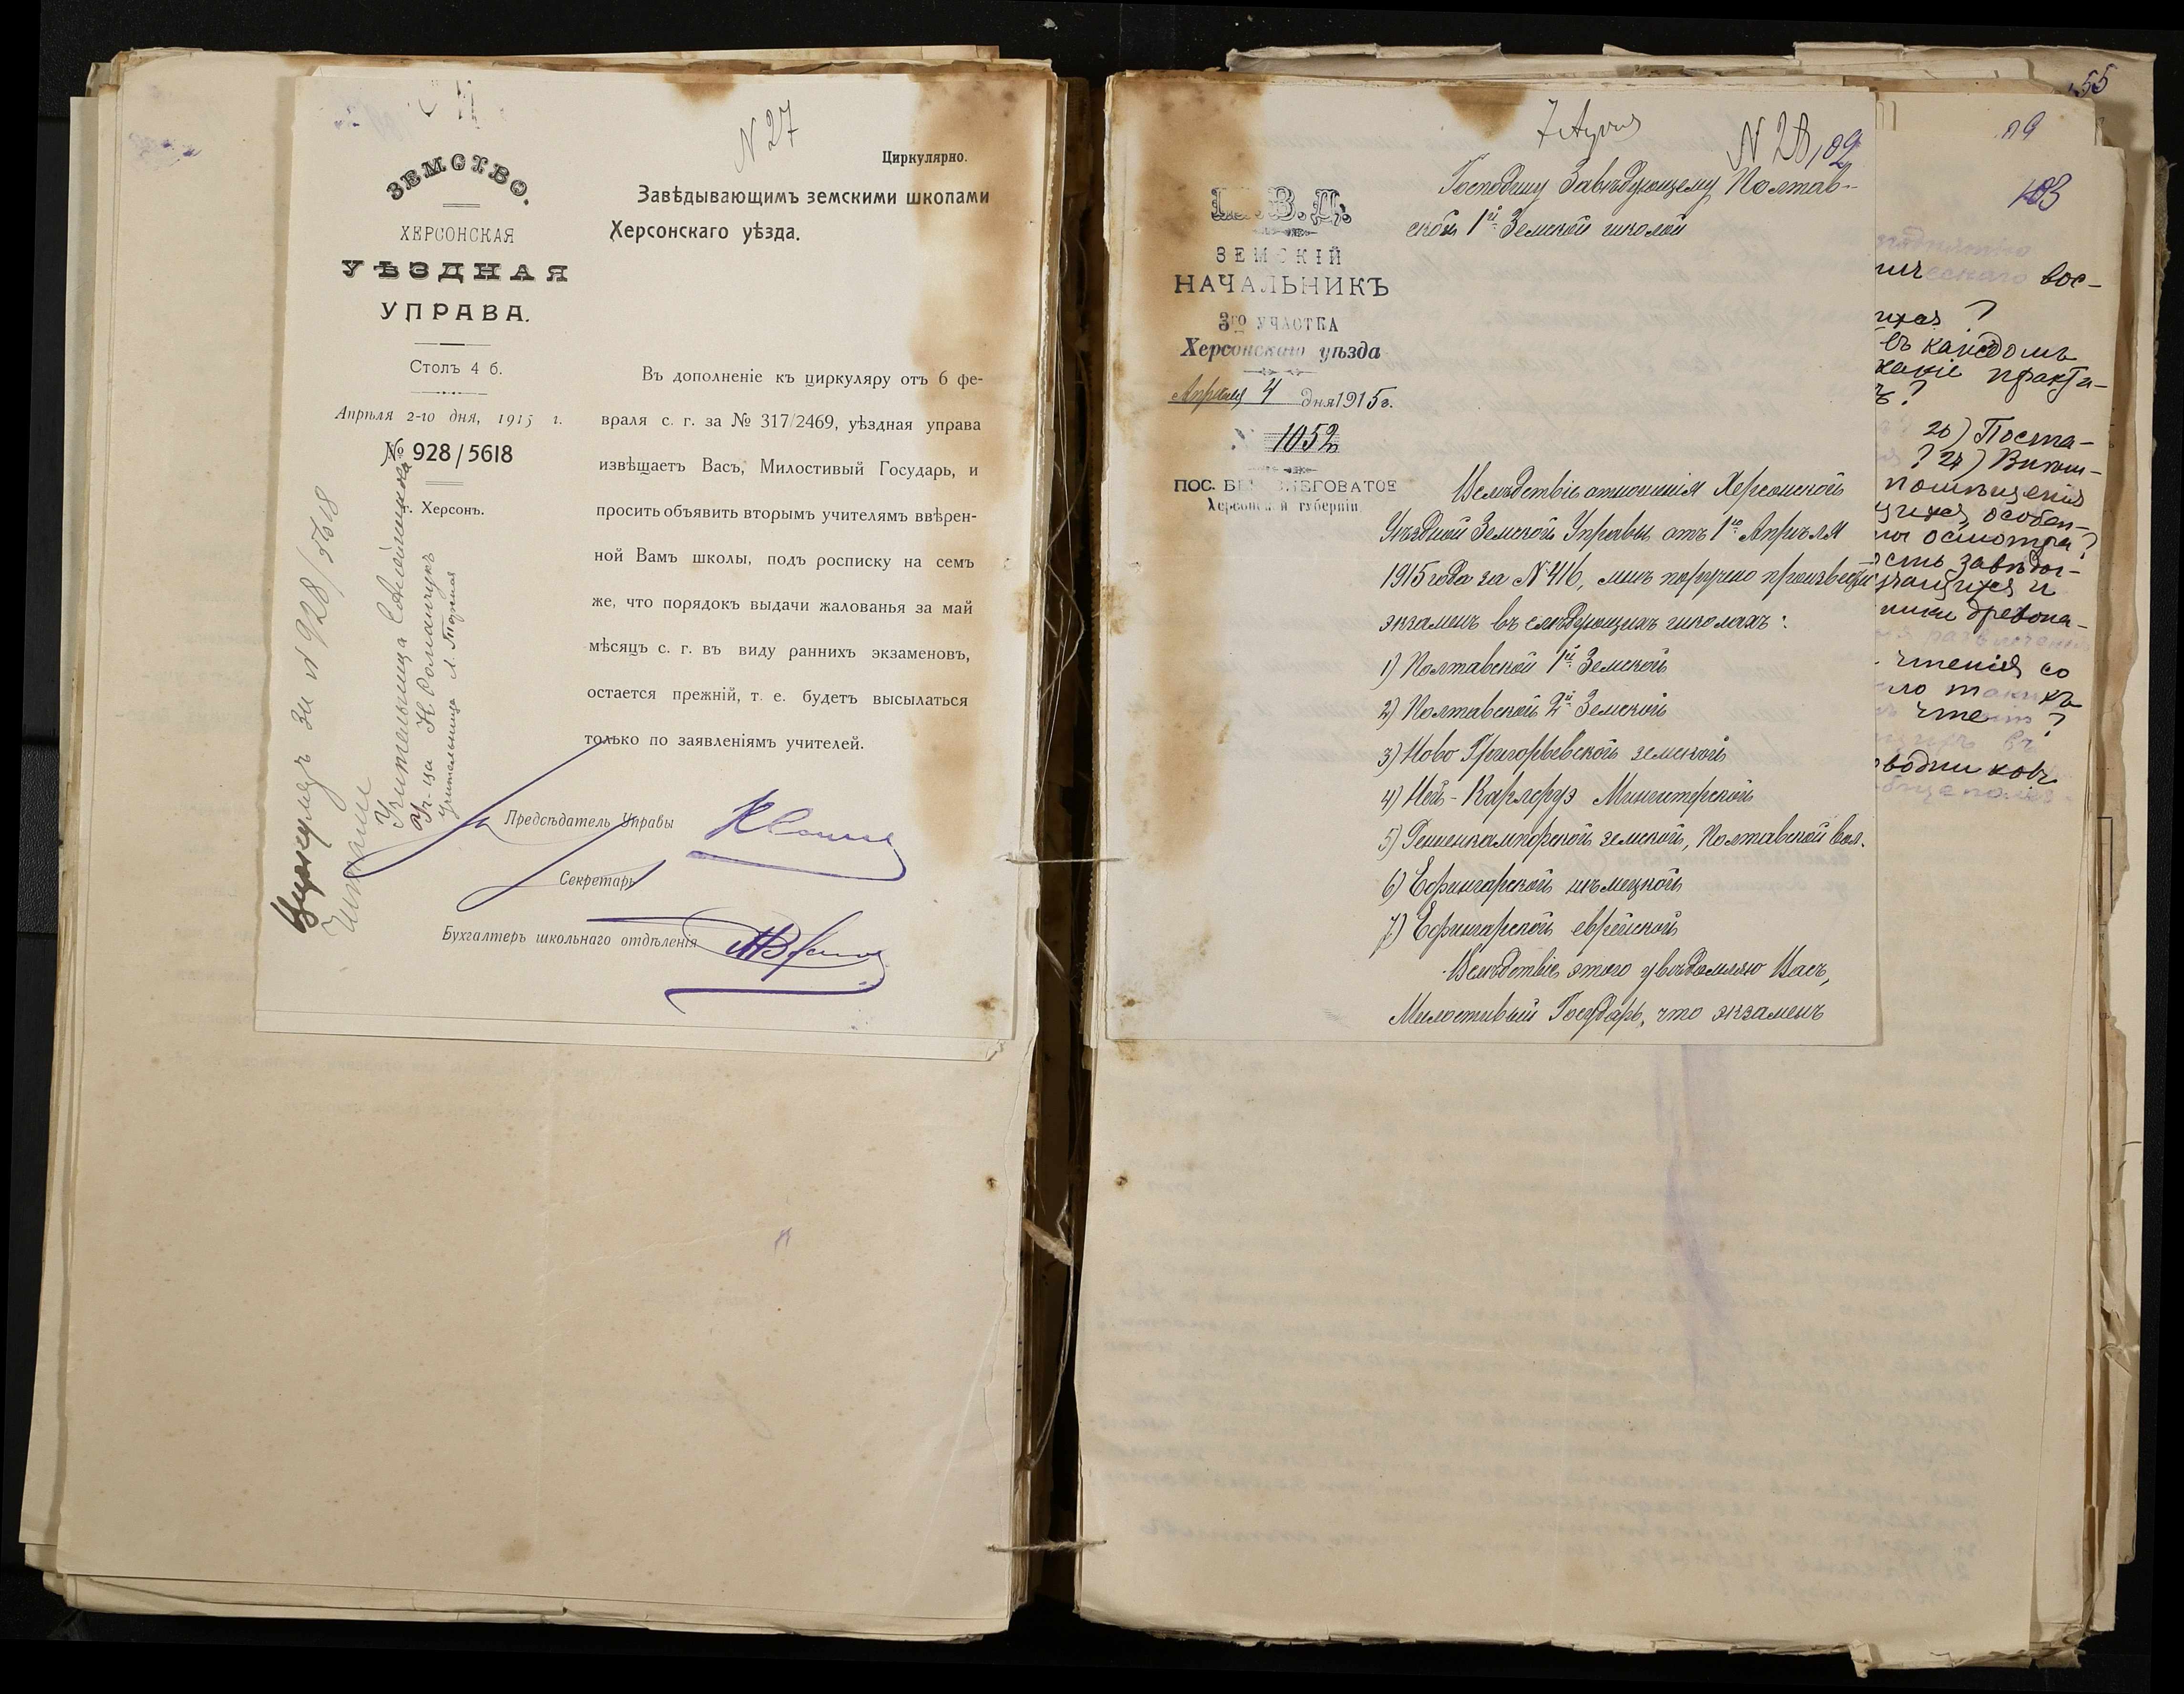 N 27
Циркулярно.
ЗЕМСТВО.
ХЕРСОНСКАЯ
УѢЗДНАЯ
УПРАВА.
Столъ 4 б.
Апрѣля 2-го дня, 1915 г.
№ 928/5618
г. Херсонъ.
Завѣдывающимъ земскими школами
Херсонскаго уѣзда.
Въ дополненіе къ циркуляру отъ 6 фе-
враля с. г. за № 317/2469, уѣздная управа
извѣщаетъ Васъ, Милостивый Государь, и
просить объявить вторымъ учителямъ ввѣрен-
ной Вамъ школы, подъ росписку на семъ
же, что порядокъ выдачи жалованья за май
мѣсяцъ с. г. въ виду раннихъ экзаменовъ,
остается прежній, т. е. будетъ высылаться
только по заявленіямъ учителей.
Предсѣдатель Управы
Секретарь
Бухгалтеръ школьнаго отдѣленія
Циркуляръ за N 928/5618
Читали
Учительница
Уч-ца Н Романчукъ
Учительница Л.
7 Апрѣля
N 28
109
Господину Завѣдующему Полтав-
ской 1й Земской школой
М.В.Д.
ЗЕМСКІЙ
НАЧАЛЬНИКЪ
3го УЧАСТКА
Херсонскаго уѣзда
Апрѣля 4 дня 1915 г.
N 1052
ПОС. БЕРЕЗНЕГОВАТОЕ
Херсонской губерніи
Вслѣдствіе отношенія Херсонской
Уѣздной Земской Управы отъ 1го Апрѣля
1915 года за N 416, мнѣ поручено произвести
экзаменъ въ слѣдующихъ школахъ:
1) Полтавской 1й Земской
2) Полтавской 2й Земской
3) Ново Григорьевской земской
4) Ней-Карлсруэ Министерской
5) земской, Полтавской вол.
6) Ефингарской нѣмецкой
7) Ефингарской еврейской
Вслѣдствіе этого увѣдомляю Васъ,
Милостивый Государь, что экзаменъ
55
103
вос-
?
въ каждомъ
какіе практи-
?
20) Поста-
? 21)
помѣщенія
особен-
осмотра?
завѣды-
и
чтенія со
?